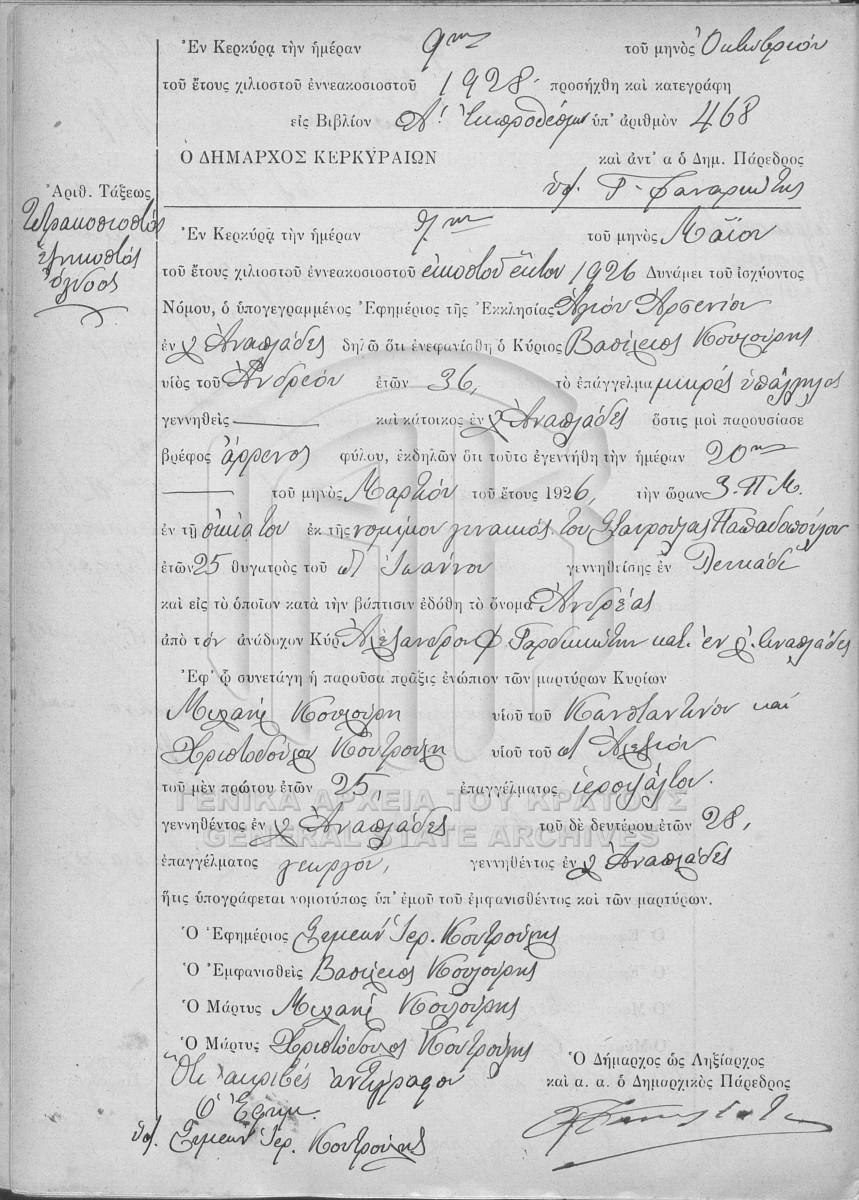 Ἐν Κερκύρᾳ τὴν ἡμέραν 9ην τοῦ μηνὸς Ὀκτωβρίου
τοῦ ἔτους χιλιοστοῦ ἐννεακοσιοστοῦ 1928 προσήχθη καὶ κατεγράφη
εἰς Βιβλίον Α' ἐκπροθέσμων ὑπ' ἀριθμὸν 468
Ο ΔΗΜΑΡΧΟΣ ΚΕΡΚΥΡΑΙΩΝ καὶ ἀντ' α ὁ Δημ. Πάρεδρος
Ἀριθ. Τάξεως
Τετρακοσιοστός
ἑξηκοστός
ὄγδοος
Ἐν Κερκύρᾳ τὴν ἡμέραν τοῦ μηνὸς Μαΐου
τοῦ ἔτους χιλιοστοῦ ἐννεακοσιοστοῦ εἰκοστοῦ ἕκτου 1926 Δυνάμει τοῦ ἰσχύοντος
Νόμου, ὁ ὑπογεγραμμένος Ἐφημέριος τῆς Ἐκκλησίας Ἁγίου Ἀρσενίου
ἐν χ Ἀναπλάδες δηλῶ ὅτι ἐνεφανίσθη ὁ Κύριος Βασίλειος Κουλούρης
υἱὸς τοῦ Ἀνδρέου ἐτῶν 36, τὸ ἐπάγγελμα μικρός ὑπάλληλος
γεννηθεὶς καὶ κάτοικος ἐν χ Ἀναπλάδες ὅστις μοὶ παρουσίασε
βρέφος ἄρρενος φύλου, ἐκδηλῶν ὅτι τοῦτο ἐγεννήθη τὴν ἡμέραν 20ην
τοῦ μηνὸς Μαρτίου τοῦ ἔτους 1926, τὴν ὥραν 3. Π.Μ.
ἐν τῇ οἰκίᾳ του ἐκ τῆς νομίμου γυναικός του Σταυρούλας Παπαδοπούλου
ἐτῶν 25 θυγατρὸς τοῦ Ἰωάννου γεννηθείσης ἐν
καὶ εἰς τὸ ὁποῖον κατὰ τὴν βάπτισιν ἐδόθη τὸ ὄνομα Ἀνδρέας
ἀπὸ τὸν ἀνάδοχον Κύρ Ἀλέξανδρον Φ Γαρδικιώτην κατ. ἐν χ. Ἀναπλάδες
Ἐφ' ᾧ συνετάγη ἡ παροῦσα πρᾶξις ἐνώπιον τῶν μαρτύρων Κυρίων
Μιχαήλ Κουλούρη υἱοῦ τοῦ Κωνσταντίνου καί
Χριστοδούλου Κουτρούλη υἱοῦ τοῦ Ἀλεξίου
τοῦ μὲν πρώτου ἐτῶν 25, ἐπαγγέλματος ἱεροψάλτου.
ΓΕΝΙΚΑ ΑΡΧΕΙΑ ΤΟΥ ΚΡΑΤΟΥΣ
γεννηθέντος ἐν χ Ἀναπλάδες τοῦ δὲ δευτέρου ἐτῶν 28,
GENERAL STATE ARCHIVES
ἐπαγγέλματος γεωργοῦ, γεννηθέντος ἐν χ Ἀναπλάδες
ἥτις ὑπογράφεται νομοτύπως ὑπ' ἐμοῦ τοῦ ἐμφανισθέντος καὶ τῶν μαρτύρων.
Ὁ Ἐφημέριος Σιμεών Ἱερ. Κουτρούλης
Ὁ Ἐμφανισθεὶς Βασίλειος Κουλούρης
Ὁ Μάρτυς Μιχαήλ Κουλούρης
Ὁ Μάρτυς Χριστόδουλος Κουτρούλης
Ὅτι ἀκριβές ἀντίγραφον
Ὁ Δήμαρχος ὡς Ληξίαρχος
καὶ α. α. ὁ Δημαρχικὸς Πάρεδρος
Ὁ Ἐφημ.
Σιμεών Ἱερ. Κουτρούλης